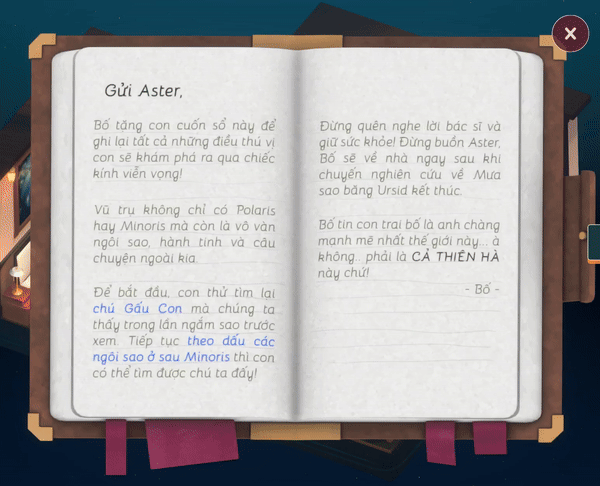 Gửi Aster,
Bố tặng con cuốn sổ này để
ghi lại tất cả những điều thú vị
con sẽ khám phá ra qua chiếc
kính viễn vọng!
Vũ trụ không chỉ có Polaris
hay Minoris mà còn là vô vàn
ngôi sao, hành tinh và câu
chuyện ngoài kia.
Để bắt đầu, con thử tìm lại
chú Gấu Con mà chúng ta
thấy trong lần ngắm sao trước
xem. Tiếp tục theo dấu các
ngôi sao ở sau Minoris thì con
có thể tìm được chú ta đấy!
Đừng quên nghe lời bác sĩ và
giữ sức khỏe! Đừng buồn Aster,
Bố sẽ về nhà ngay sau khi
chuyến nghiên cứu về Mưa
sao băng Ursid kết thúc.
Bố tin con trai bố là anh chàng
mạnh mẽ nhất thế giới này... à
không.. phải là CẢ THIÊN HÀ
này chứ!
- Bố -